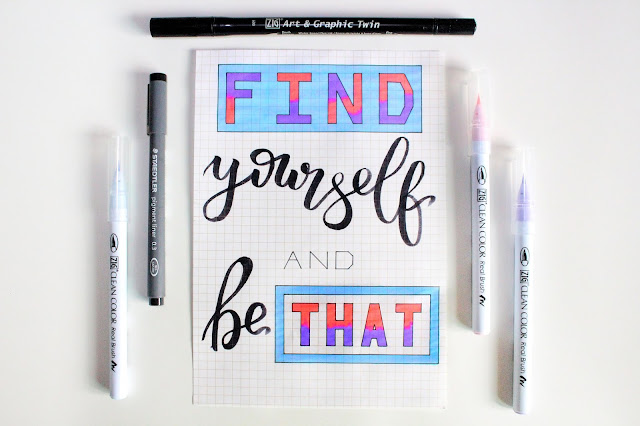 ZIG Art & Graphic Twin
FIND
yourself
AND
be THAT
STAEDTLER pigment liner 0.3
ZIG CLEAN COLOR Real Brush
ZIG CLEAN COLOR Real Brush
ZIG CLEAN COLOR Real Brush